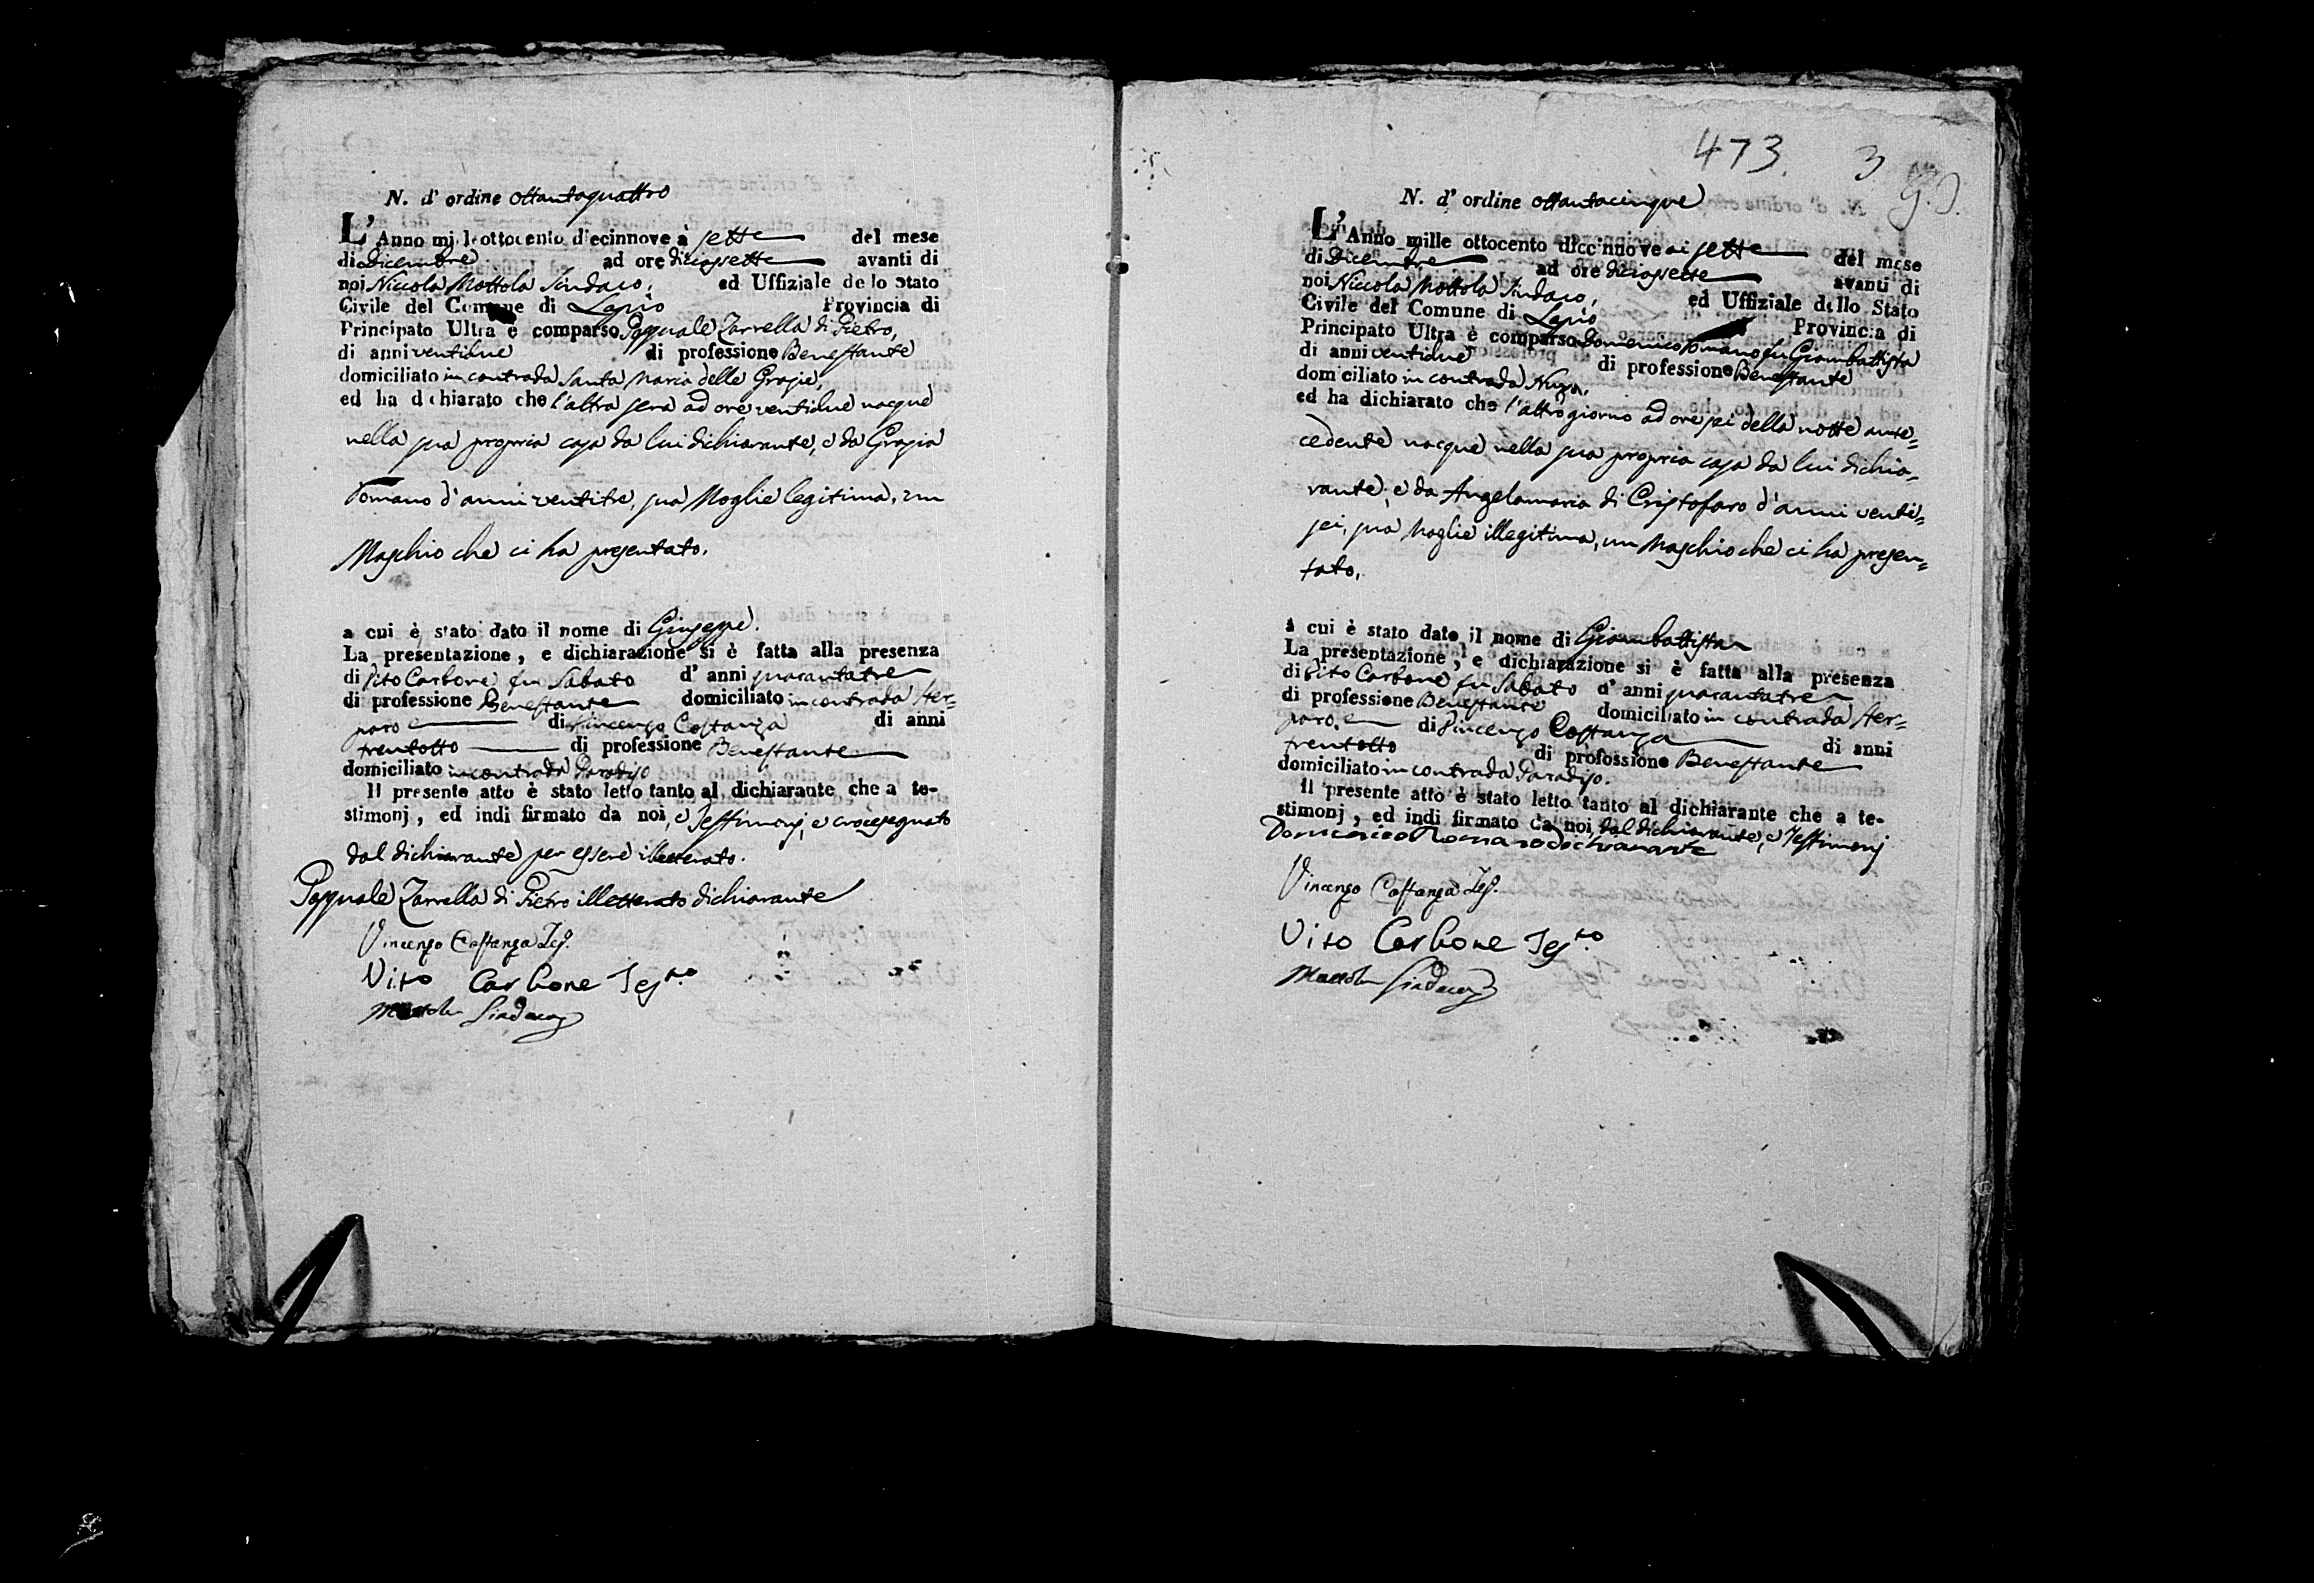 N. d' ordine ottantaquattro
L' Anno mille ottocento diecinnove à sette del mese
di Dicembre ad ore diciassette avanti di
noi Niccola Mottola Sindaco, ed Uffiziale dello Stato
Civile del Comune di Lapio Provincia di
Principato Ultra è comparso Pasquale Zarrella di Pietro,
di anni ventidue di professione Benestante
domiciliato in contrada Santa Maria delle Grazie,
ed ha dichiarato che l'altra sera ad ore ventidue nacque
nella sua propria casa da lui dichiarante, e da Grazia
Romano d'anni ventitre, sua Moglie legitima, un
Maschio che ci ha presentato.
a cui è stato dato il nome di Giuseppe.
La presentazione, e dichiarazione si è fatta alla presenza
di Vito Carbone fu Sabato d' anni quarantatre
di professione Benestante domiciliato in contrada Ster=
paro e di Vincenzo Costanza di anni
trentotto di professione Benestante
domiciliato in contrada Paradiso
Il presente atto è stato letto tanto al dichiarante che a te-
stimonj, ed indi firmato da noi, e Testimonj, e crocesegnato
dal dichiarante per essere illetterato.
Pasquale Zarrella di Pietro illetterato dichiarante
Vincenzo Costanza Tes.
Vito Carbone Tes.to
Mottola Sindaco
473. 3
N. d' ordine ottantacinque
L' Anno mille ottocento diecinnove ai sette del mese
di Dicembre ad ore diciassette avanti di
noi Niccola Mottola Sindaco, ed Uffiziale dello Stato
Civile del Comune di Lapio Provincia di
Principato Ultra è comparso Domenico Romano fu Giambattista
di anni ventidue di professione Benestante
domiciliato in contrada Nuza,
ed ha dichiarato che l'altro giorno ad ore sei della notte ante=
cedente nacque nella sua propria casa da lui dichia=
rante, e da Angelamaria di Cristofaro d'anni venti=
sei, sua Moglie illegitima, un Maschio che ci ha presen=
tato.
a cui è stato dato il nome di Giambattista
La presentazione, e dichiarazione si è fatta alla presenza
di Vito Carbone fu Sabato d' anni quarantatre
di professione Benestante domiciliato in contrada Ster=
paro, e di Vincenzo Costanza di anni
trentotto di professione Benestante
domiciliato in contrada Paradiso.
Il presente atto è stato letto tanto al dichiarante che a te-
stimonj, ed indi firmato da noi, dal dichiarante, e Testimonj
Domenico Romano dichiarante
Vincenzo Costanza Tes.
Vito Carbone Tes.to
Mottola Sindaco